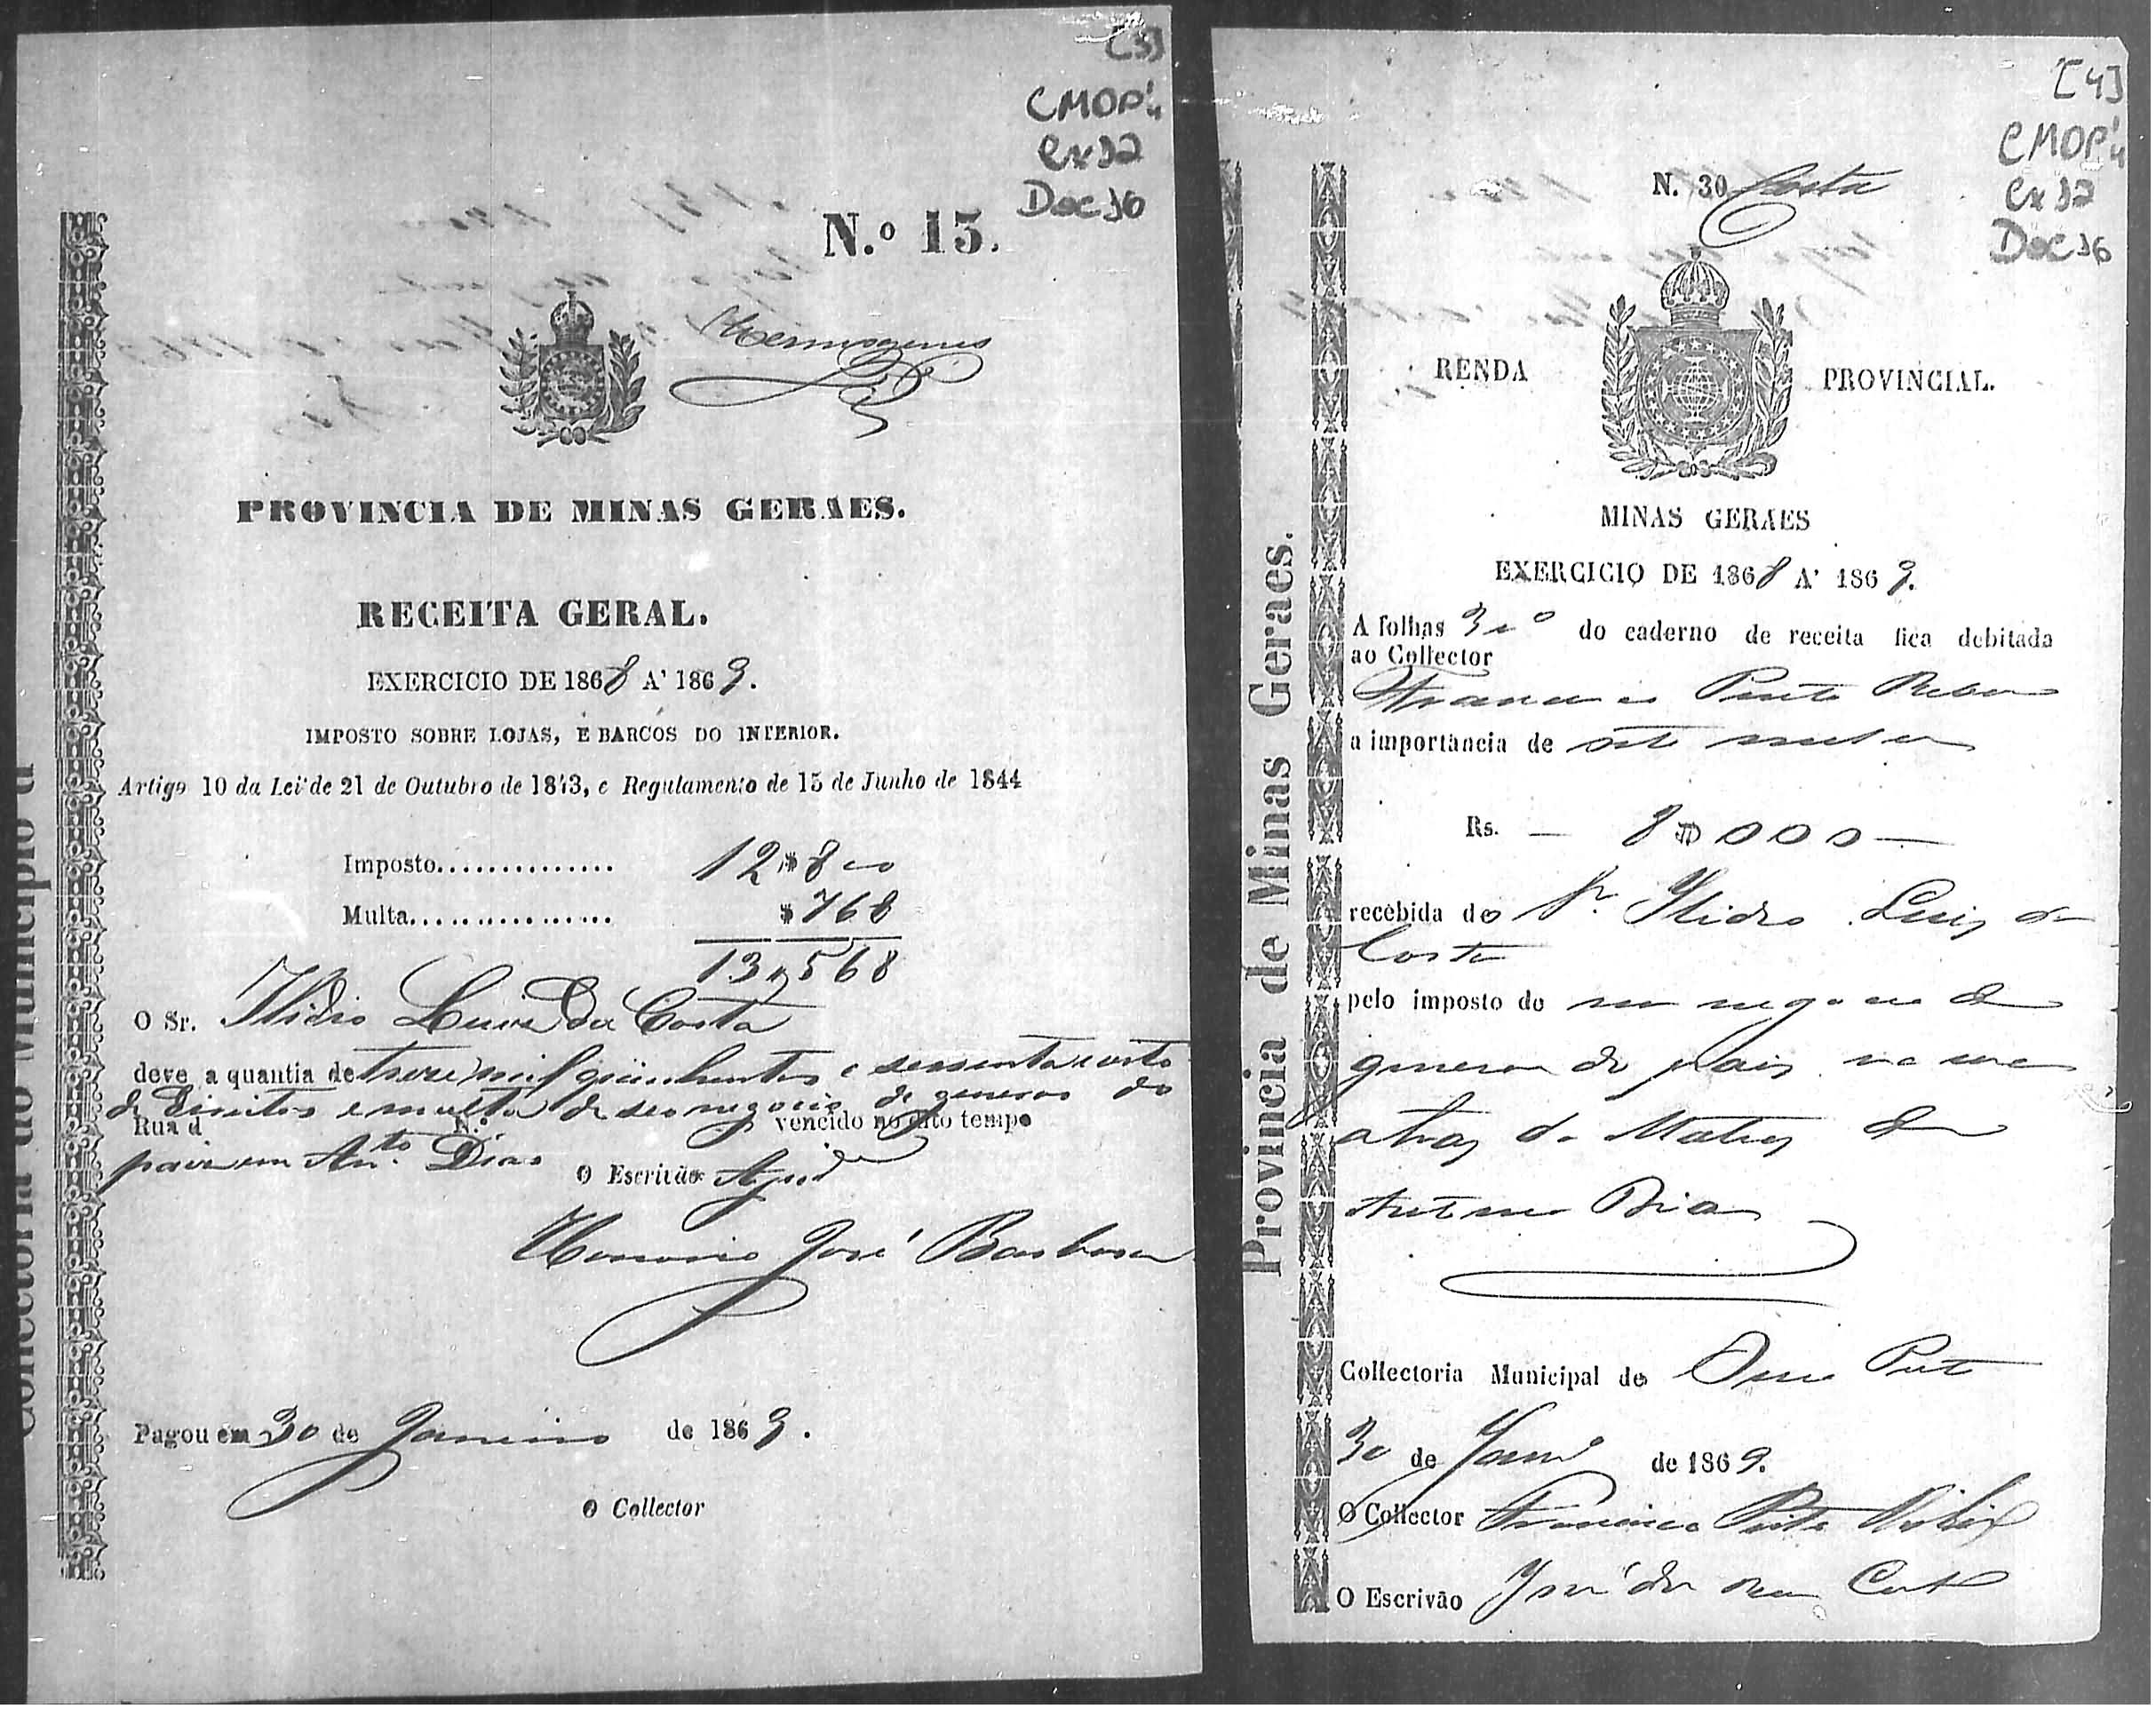 [3]
CMOP
Cx 12
Doc 16
N.º 15.
Hermogenes
PROVINCIA DE MINAS GERAES.
RECEITA GERAL.
EXERCICIO DE 1868 A' 1869.
IMPOSTO SOBRE LOJAS, E BARCOS DO INTERIOR.
Artigo 10 da Lei de 21 de Outubro de 1843, e Regulamento de 15 de Junho de 1844
Imposto............... 12$800
Multa................ $768
13,,568
O Sr. Ilidio Luis da Costa
deve a quantia de trese mil quinhentos e sessenta e oito
de Direitos e multa de seo negocio de generos do
Rua d N.º vencido no dito tempo
pais em Anto. Dias
O Escrivão Ajud
Honorio José Barbosa
Pagou em 30 de Janeiro de 1869.
O Collector
Collectoria do Municipio d
[4]
CMOP
Cx 12
Doc 16
N. 30 Costa
RENDA PROVINCIAL.
MINAS GERAES
EXERCICIO DE 1868 A' 1869.
A folhas do caderno de receita fica debitada
ao Collector
Francisco Pinto
a importancia de oito mil
Rs. — 8$000 —
recebida do Sr. Ilidio Luis da
Costa
pelo imposto de seu negocio de
generos do pais na rua
atras da Matriz de
Antonio Dias
Collectoria Municipal de Ouro Preto
30 de Janro de 1869.
O Collector Francisco Pinto
O Escrivão José da
Provincia de Minas Geraes.